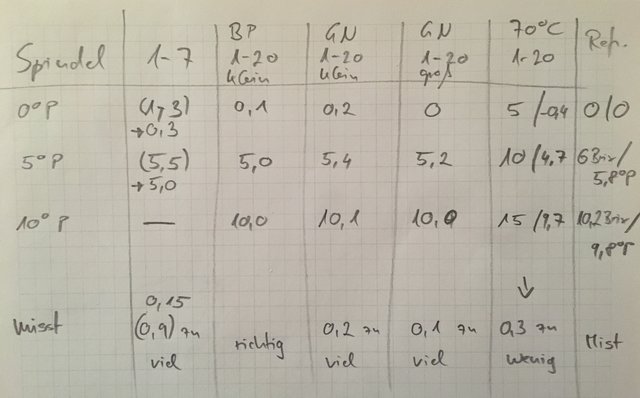 Spindel 1-7 BP 1-20 klein GN 1-20 klein GN 1-20 groß 70°C 1-20 Ref.
0°P (1,3) →0,3 0,1 0,2 0 5/-0,4 0/0
5°P (5,5) →5,0 5,0 5,4 5,2 10/4,7 6Brix/5,8°P
10°P — 10,0 10,1 10,0 15/9,7 10,2Brix/9,8°P
misst 0,15 (0,9) zu viel richtig 0,2 zu viel 0,1 zu viel ↓ 0,3 zu wenig Mist